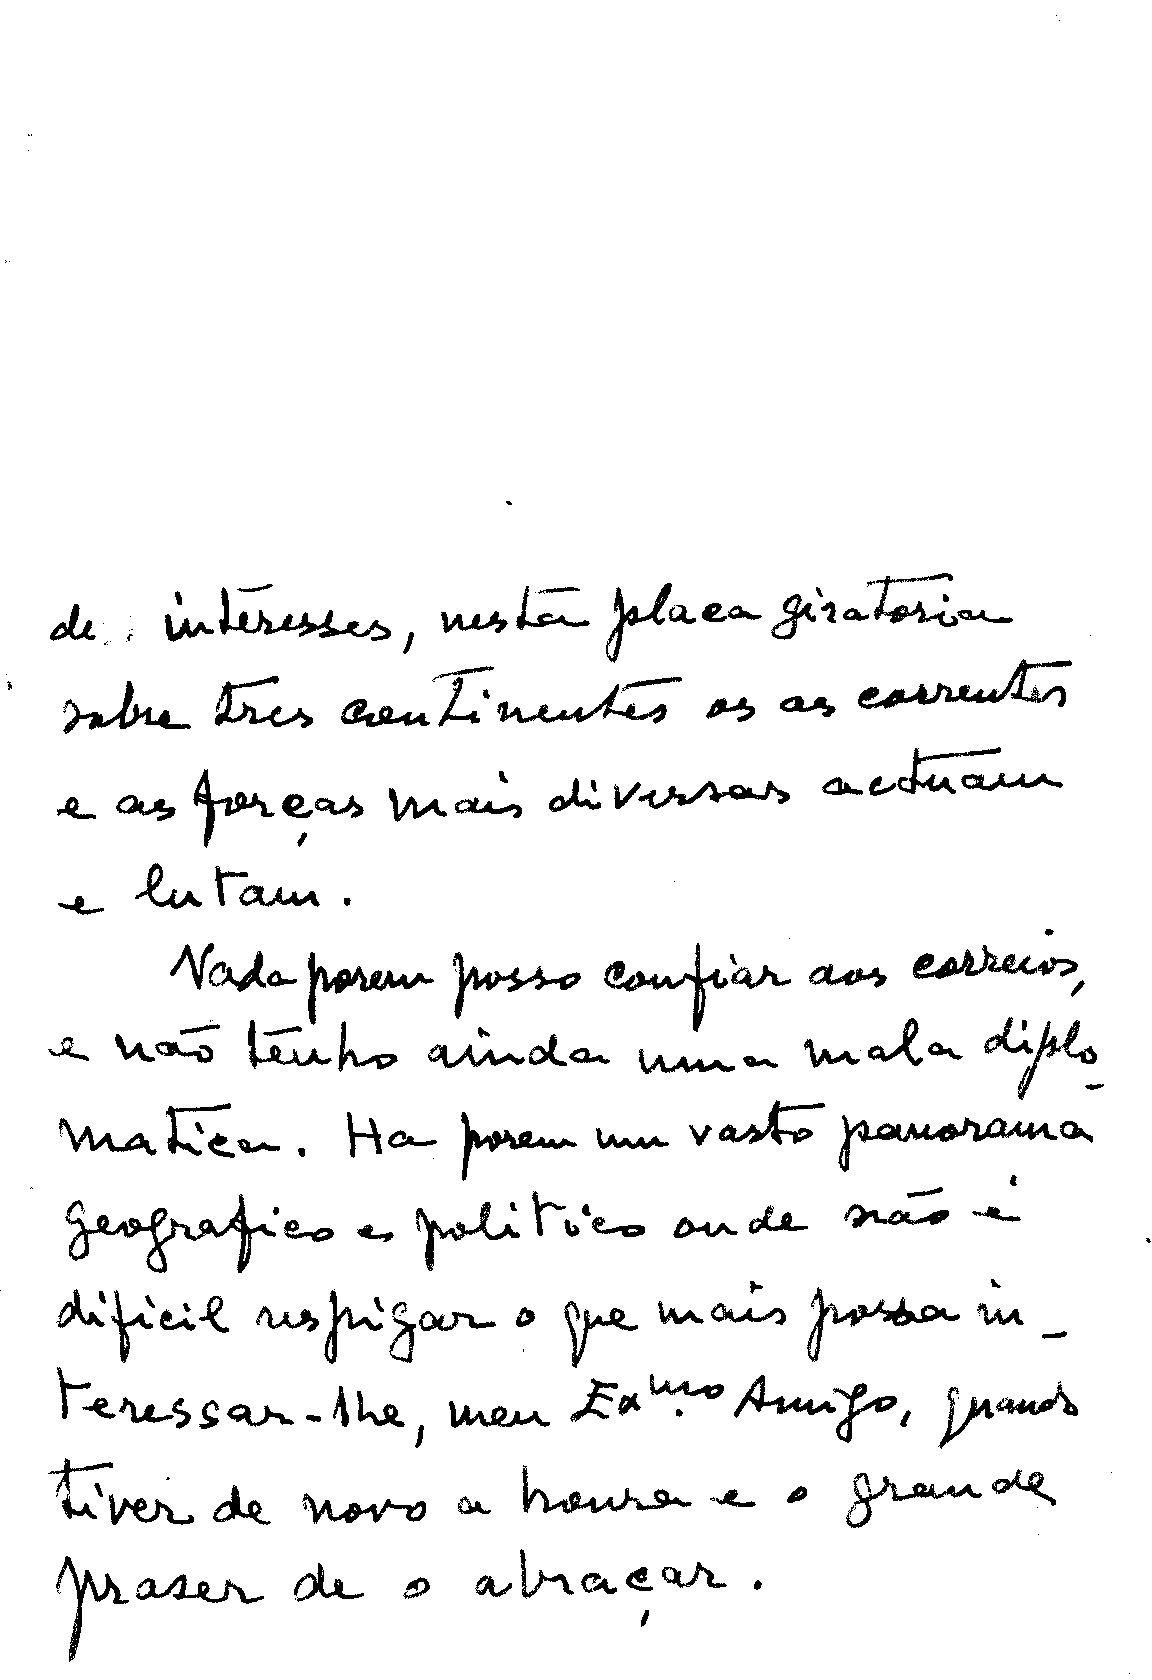 de interesses, nesta placa giratoria
sobre tres continentes os as correntes
e as forças mais diversas actuam
e lutam.
Nada porem posso confiar aos correios,
e não tenho ainda uma mala diplo-
matica. Ha porem um vasto panorama
geografico e politico onde não é
dificil respigar o que mais possa in-
teressar-lhe, meu Exmo. Amigo, quando
tiver de novo a honra e o grande
praser de o abraçar.